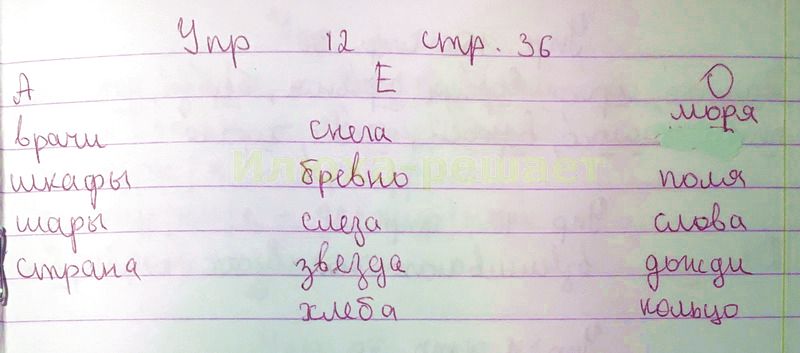 Упр 12 стр. 36
А Е О
моря
врачи снега
Илюха-решает
шкафы бревно поля
шары слеза слова
страна звезда дожди
хлеба кольцо